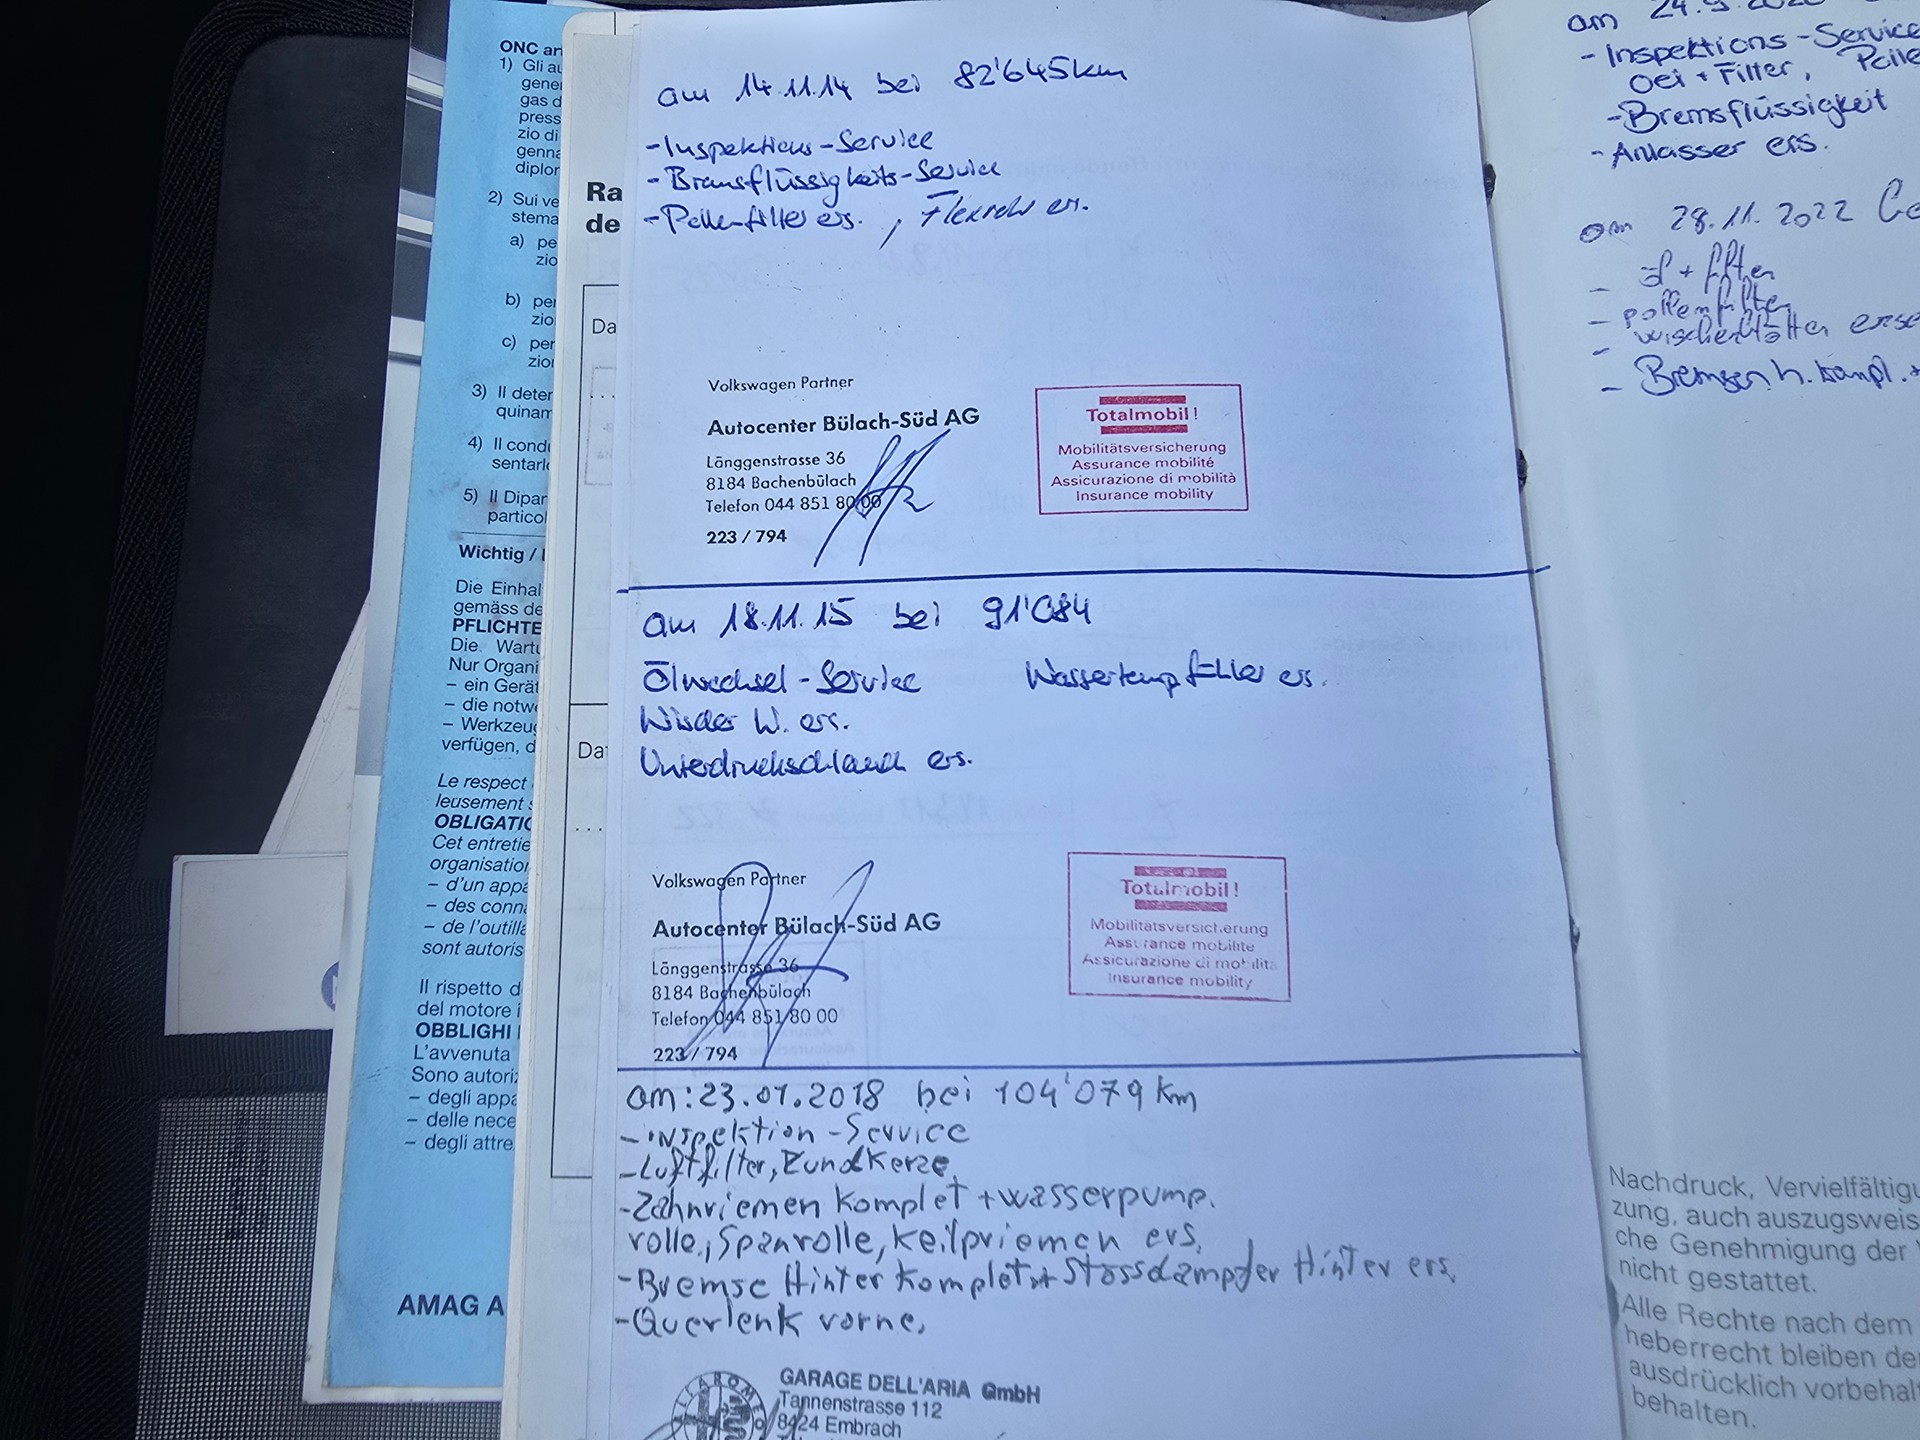 ONC
1) Gli
gas d
zio di
2) Sui
a)
zio
b)
zio
c)
3) Il
4) Il
5) Il
Wichtig /
Die
gemäss
PFLICHTE
Die
Nur
– ein
– die
– Werkzeug
verfügen, d
Le respect
OBLIGATIO
Cet
– d'un
– des
– de l'outilla
sont
Il rispetto d
del motore
OBBLIGHI
L'avvenuta
Sono
– degli
– delle
– degli
AMAG A
Ra
de
Da
Dat
am 14.11.14 bei 82'645km
-Inspektions-Service
-Bremsflüssigkeits-Service
-Pollenfilter ers., Flexrohr ers.
Volkswagen Partner
Autocenter Bülach-Süd AG
Länggenstrasse 36
8184 Bachenbülach
Telefon 044 851 80 00
223 / 794
Totalmobil!
Mobilitätsversicherung
Assurance mobilité
Assicurazione di mobilità
Insurance mobility
am 18.11.15 bei 91'084
Ölwechsel-Service Wassertempfühler ers.
W. ers.
ers.
Volkswagen Partner
Autocenter Bülach-Süd AG
Länggenstrasse 36
8184 Bachenbülach
Telefon 044 851 80 00
223 / 794
Totalmobil!
Mobilitätsversicherung
Assurance mobilité
Assicurazione di mobilità
Insurance mobility
am: 23.01.2018 bei 104'079 km
-Inspektion-Service
-Luftfilter, Zundkerze
-Zahnriemen komplet + wasserpump.
rolle, Spanrolle, keilpriemen ers,
-Bremse Hinter komplet + Stossdämpfer Hinter ers,
-Querlenk vorne,
GARAGE DELL'ARIA GmbH
Tannenstrasse 112
8424 Embrach
am
- Inspektions-Service
Oel + Filter,
-Bremsflüssigkeit
-Anlasser ers.
am 28.11.2022
- öl + filter
- pollenfilter
- wischerblätter
- Bremsen h. kompl. +
Nachdruck, Vervielfältigu
zung, auch auszugsweis
che Genehmigung der
nicht gestattet.
Alle Rechte nach dem
heberrecht bleiben de
ausdrücklich vorbehal
behalten.